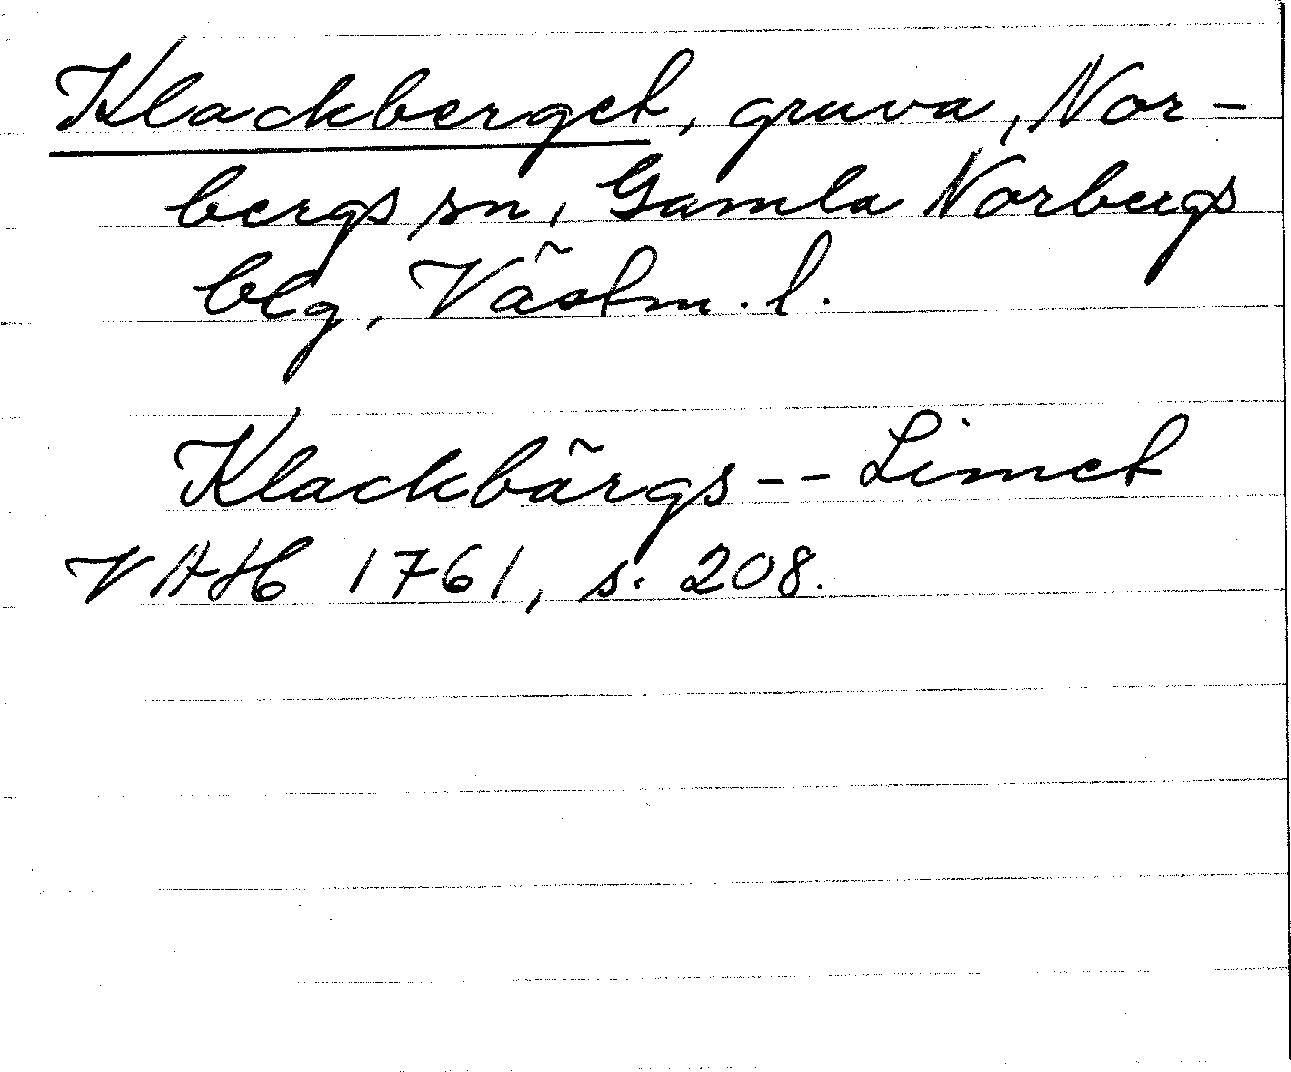 Klackberget, gruva, Nor-
bergs sn, Gamla Norbergs
blg, Västm. l.
Klackbärgs-- Limet
VAH 1761, s. 208.